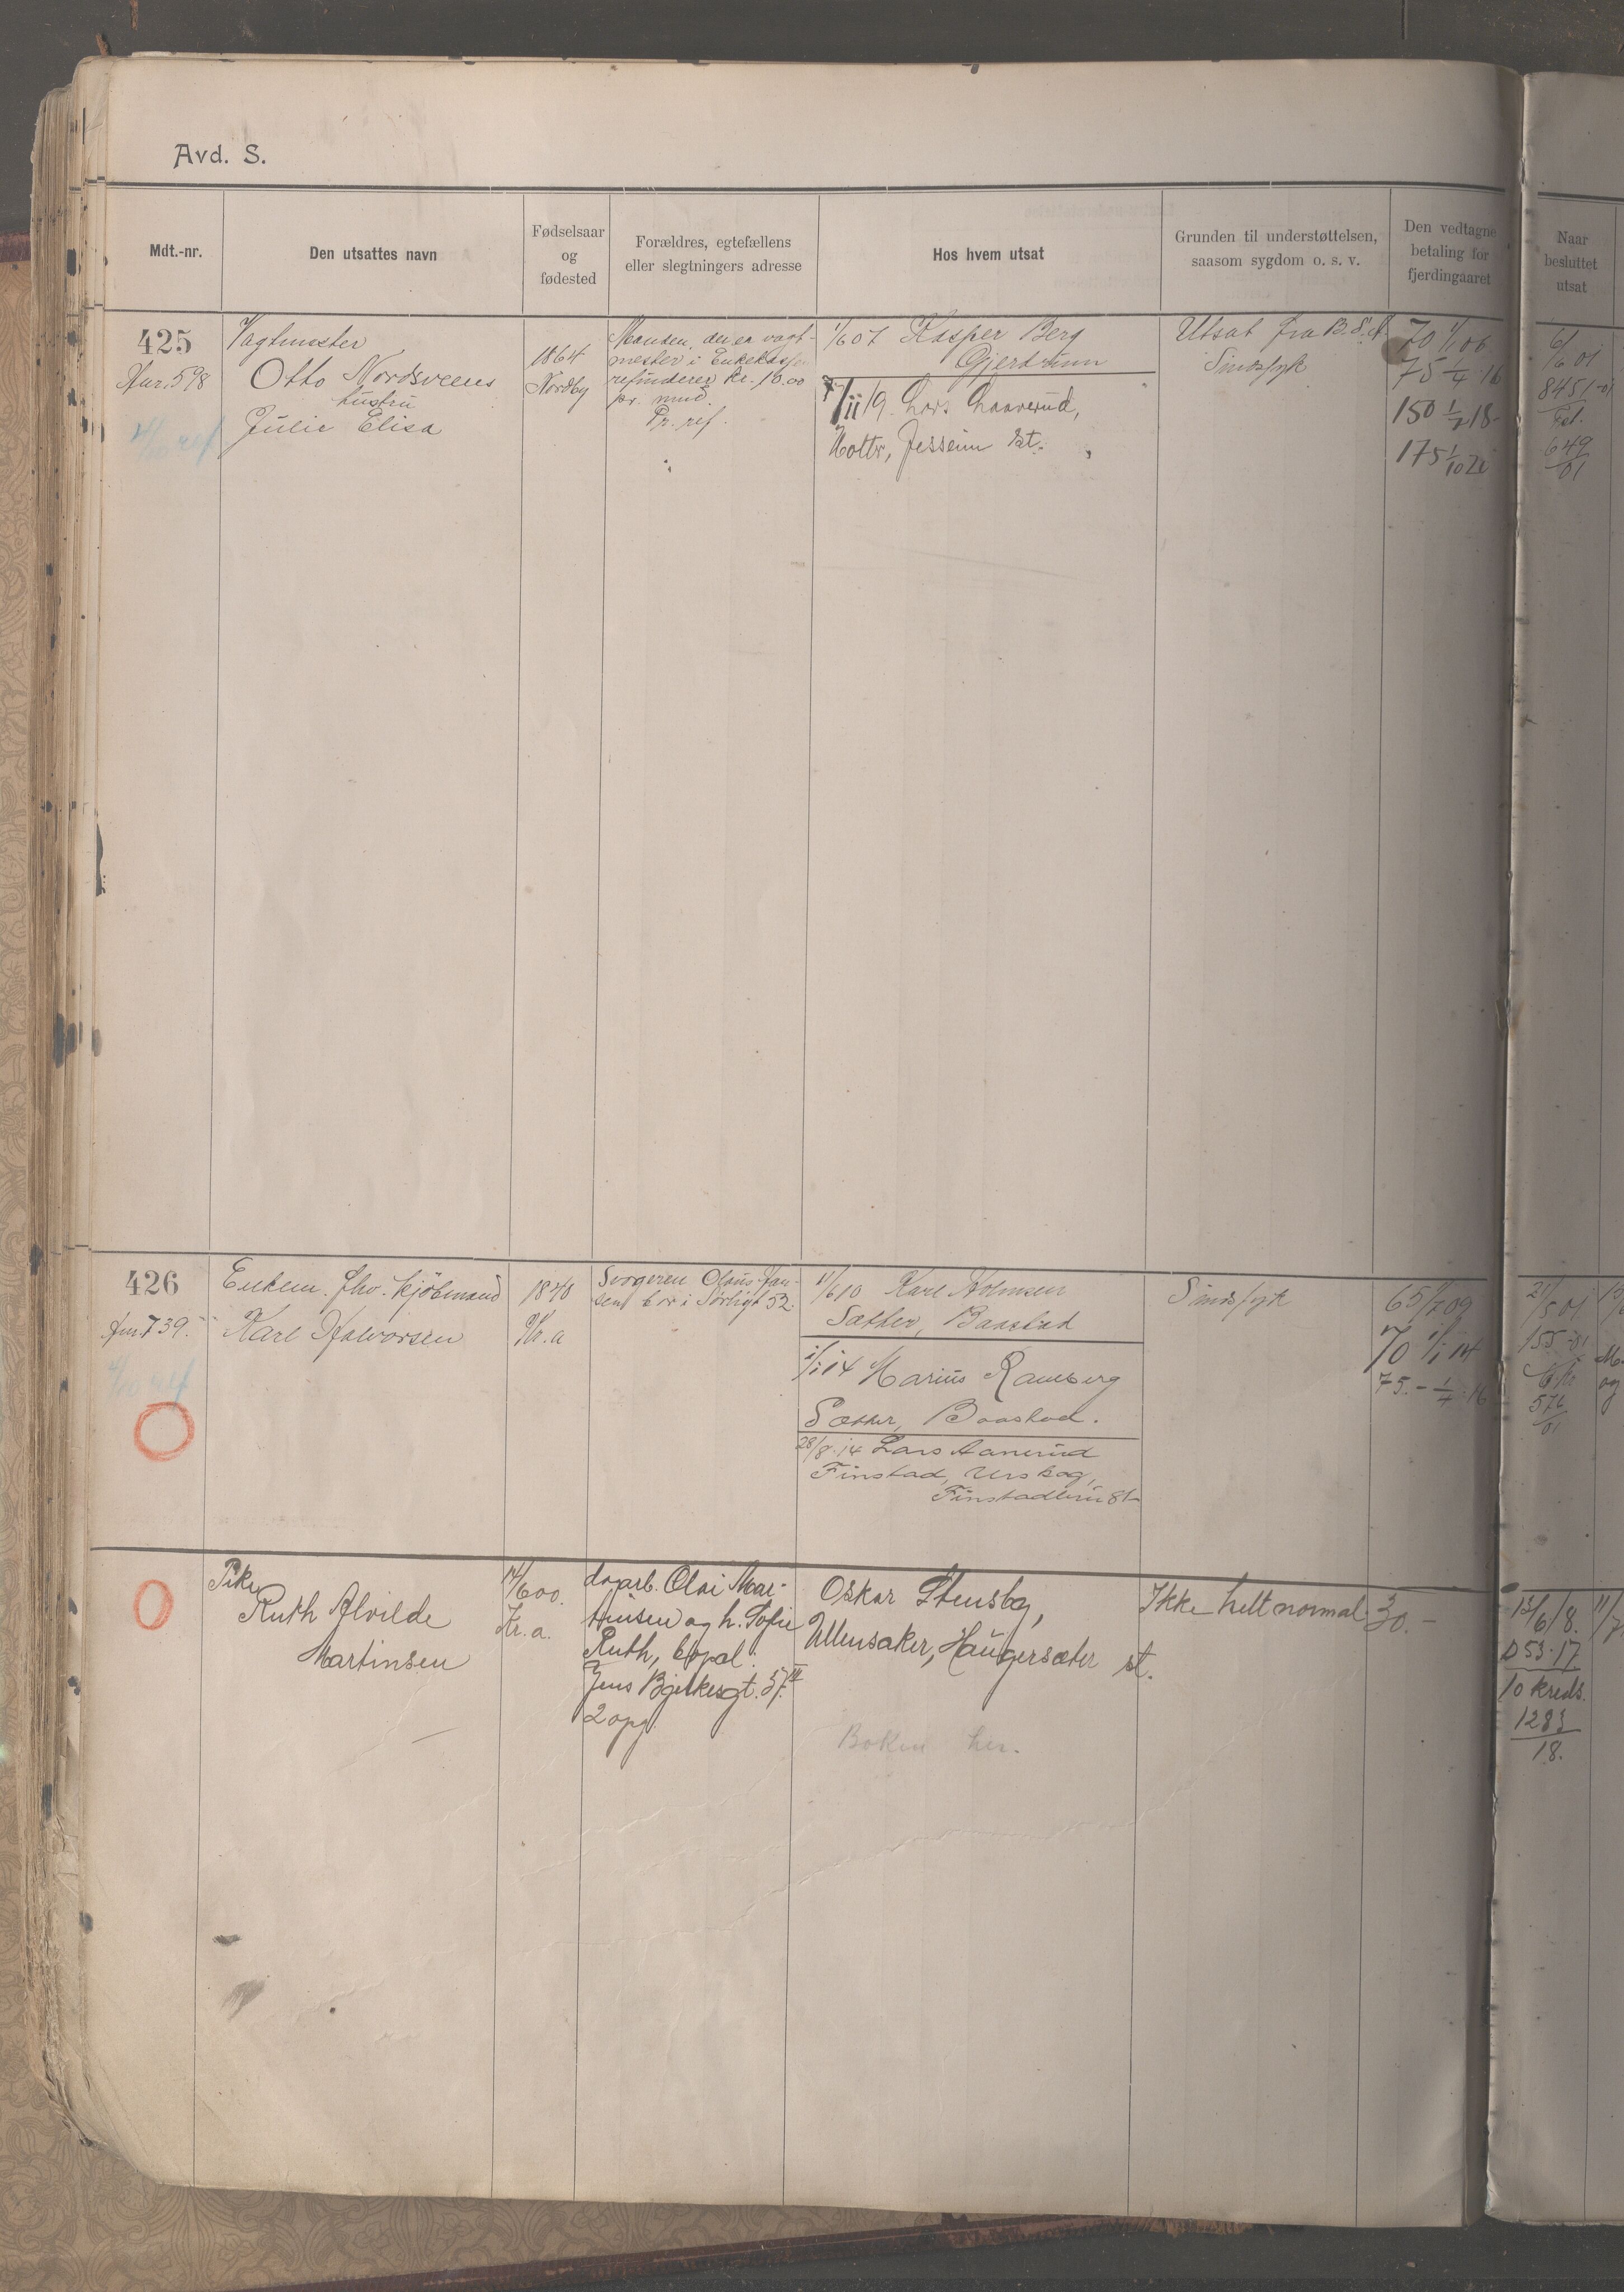 Avd. S.
Mdt.-nr.
Den utsattes navn
Fødselsaar
og
fødested
Forældres, egtefællens
eller slegtningers adresse
Hos hvem utsat
Grunden til understøttelsen,
saasom sygdom o. s. v.
Den vedtagne
betaling for
fjerdingaaret
Naar
besluttet
utsat
425
598
Vagtmester
Otto Nordsveens
hustru
Julie Elisa
1864
Nordby
Manden, der er vagt-
mester i
refunderer kr. 10.00
pr. mnd.
Pr. ref.
1/6 07 Kasper Berg
Gjerdrum
7/11 19. Lars Laaverud,
Jesseim St.
Utsat fra B.S.A
Sindssyk
70 1/1 06
75 1/4 16
150 1/7 18
175 1/10 20
6/6 01
8451-01
649
01
426
739.
Enkem. fhv. kjøbmand
Karl Halvorsen
1840
Kr.a
Svogeren Olaus Jan-
sen bor i Sørligt 52.
1/6 10 Karl Holmsen
Sæther, Baastad
1/1 14 Marius Ramberg
Sæther, Baastad.
28/8.14 Lars Aanerud
Finstad, Urskog,
Sindssyk
65 1/7 09
70 1/1 14
75.- 1/4 16
21/5 01
155-01
576
01
Pike
Ruth Alvilde
Martinsen
14/6 00.
Kr.a.
dagarb. Olai Mar-
tinsen og h. Sofie
Ruth,
Jens Bjelkesgt. 57 III
2 opg.
Oskar Stensby,
Ullensaker, Haugersæter st.
Boken her.
Ikke helt normal
30.-
13/6/8.
D 53-17
10 kreds.
1283
18.